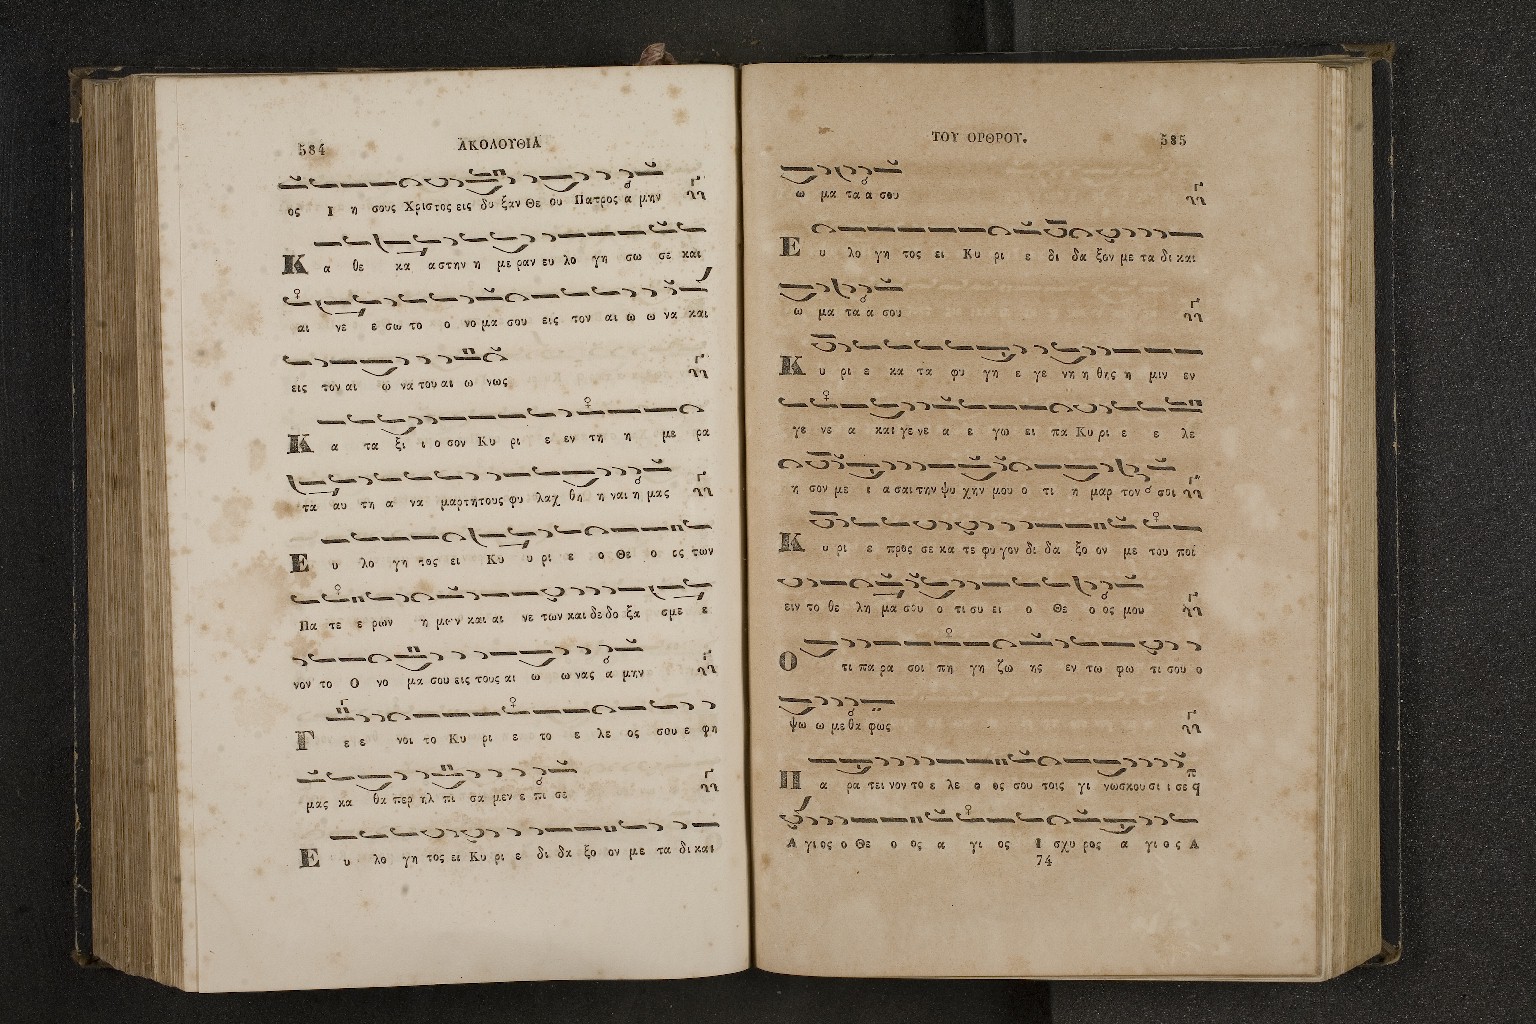 584 ΑΚΟΛΟΥΘΙΑ
ος Ι η σους Χριστος εις δο ξαν Θε ου Πατρος α μην
Κ α θε κα α στην η με ραν ευ λο γη σω σε και
αι νε ε σω το ο νο μα σου εις τον αι ω ω να και
εις τον αι ω να του αι ω νος
Κ α τα ξι ι ο σον Κυ ρι ε εν τη η με ρα
τα αυ τη α να μαρτητους φυ λαχ θη η ναι η μας
Ε υ λο γη τος ει Κυ υ ρι ε ο Θε ο ος των
Πα τε ε ρων η μων και αι νε των και δε δο ξα σμε ε
νον το Ο νο μα σου εις τους αι ω ω νας α μην
Γ ε ε νοι το Κυ ρι ε το ε λε ος σου ε φη
μας κα θα περ ηλ πι σα μεν ε πι σε
Ε υ λο γη τος ει Κυ ρι ε δι δα ξο ον με τα δι και
ΤΟΥ ΟΡΘΡΟΥ. 585
ω μα τα α σου
Ε υ λο γη τος ει Κυ ρι ε δι δα ξον με τα δι και
ω μα τα α σου
Κ υ ρι ε κα τα φυ γη ε γε νη η θης η μιν εν
γε νε α και γε νε α ε γω ει πα Κυ ρι ε ε λε
η σον με ι α σαι την ψυ χην μου ο τι η μαρ τον σοι
Κ υ ρι ε προς σε κα τε φυ γον δι δα ξο ον με του ποι
ειν το θε λη μα σου ο τι συ ει ο Θε ο ος μου
Ο τι πα ρα σοι πη γη ζω ης εν τω φω τι σου ο
ψω ω με θα φως
Π α ρα τει νον το ε λε ο ος σου τοις γι νωσκου σι ι σε
Α γι ος ο Θε ο ος α γι ος Ι σχυ ρος α γι ο ς Α
74